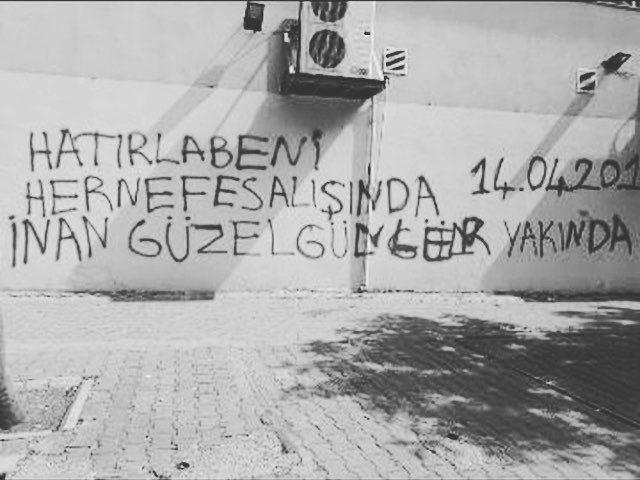 HATIRLABENİ
HERNEFESALIŞINDA
İNAN GÜZELGÜNLER YAKINDA
14.04.201